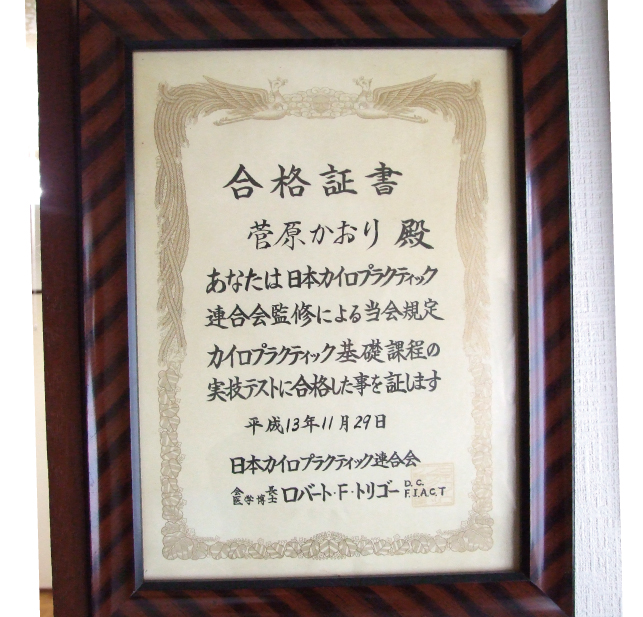 合格証書
菅原かおり 殿
あなたは日本カイロプラクティック
連合会監修による当会規定
カイロプラクティック基礎課程の
実技テストに合格した事を証します
平成13年11月29日
日本カイロプラクティック連合会
会長 医学博士 ロバート・F・トリゴー D.C. F.I.A.C.T